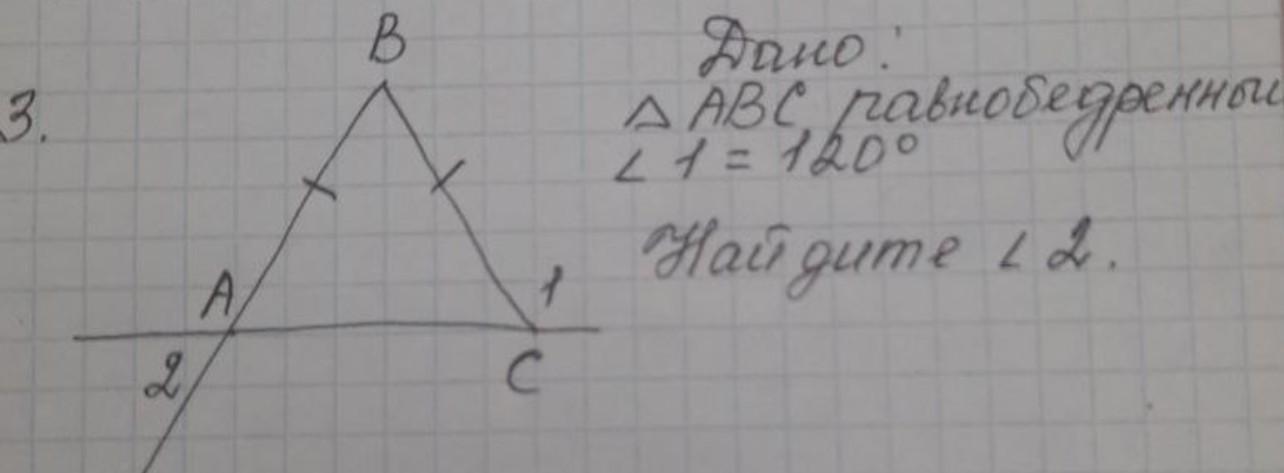 3.
B
A
1
2
C
Дано:
△ ABC равнобедренный
∠ 1 = 120°
Найдите ∠ 2.